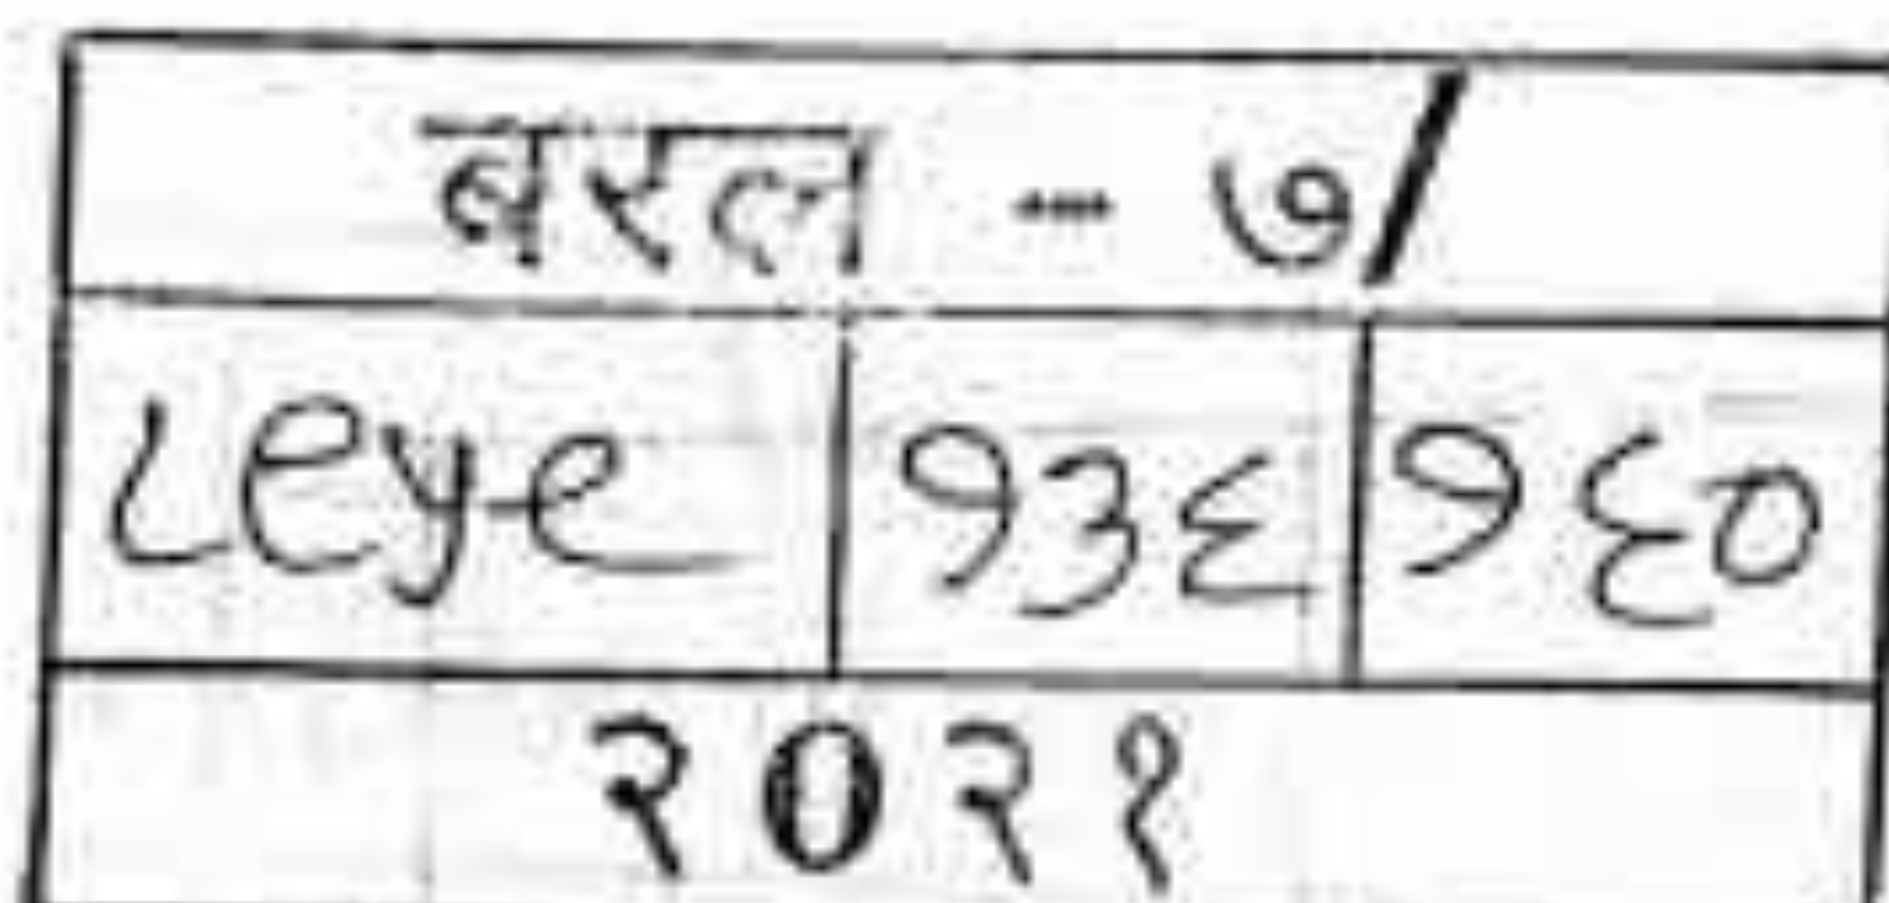 बरल --- ७/
८९५९ १३६ १६०
२०२१